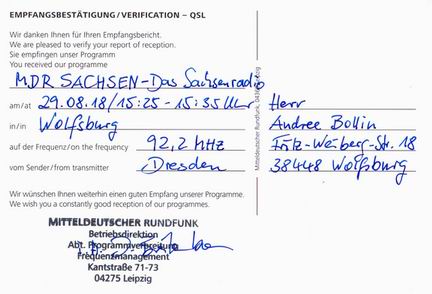 EMPFANGSBESTÄTIGUNG / VERIFICATION – QSL
Wir danken Ihnen für Ihren Empfangsbericht.
We are pleased to verify your report of reception.
Sie empfingen unser Programm
You received our programme
MDR SACHSEN-Das Sachsenradio
am/at 29.08.18/15:25 - 15:35 Uhr
in/in Wolfsburg
auf der Frequenz/on the frequency 92,2 MHz
vom Sender/from transmitter Dresden
Wir wünschen Ihnen weiterhin einen guten Empfang unserer Programme.
We wish you a constantly good reception of our programmes.
MITTELDEUTSCHER RUNDFUNK
Betriebsdirektion
Abt. Programmverbreitung
Frequenzmanagement
Kantstraße 71-73
04275 Leipzig
Mitteldeutscher Rundfunk, 04360 Leipzig
Herr
Andree Bollin
Fritz-Weiberg-Str. 18
38448 Wolfsburg